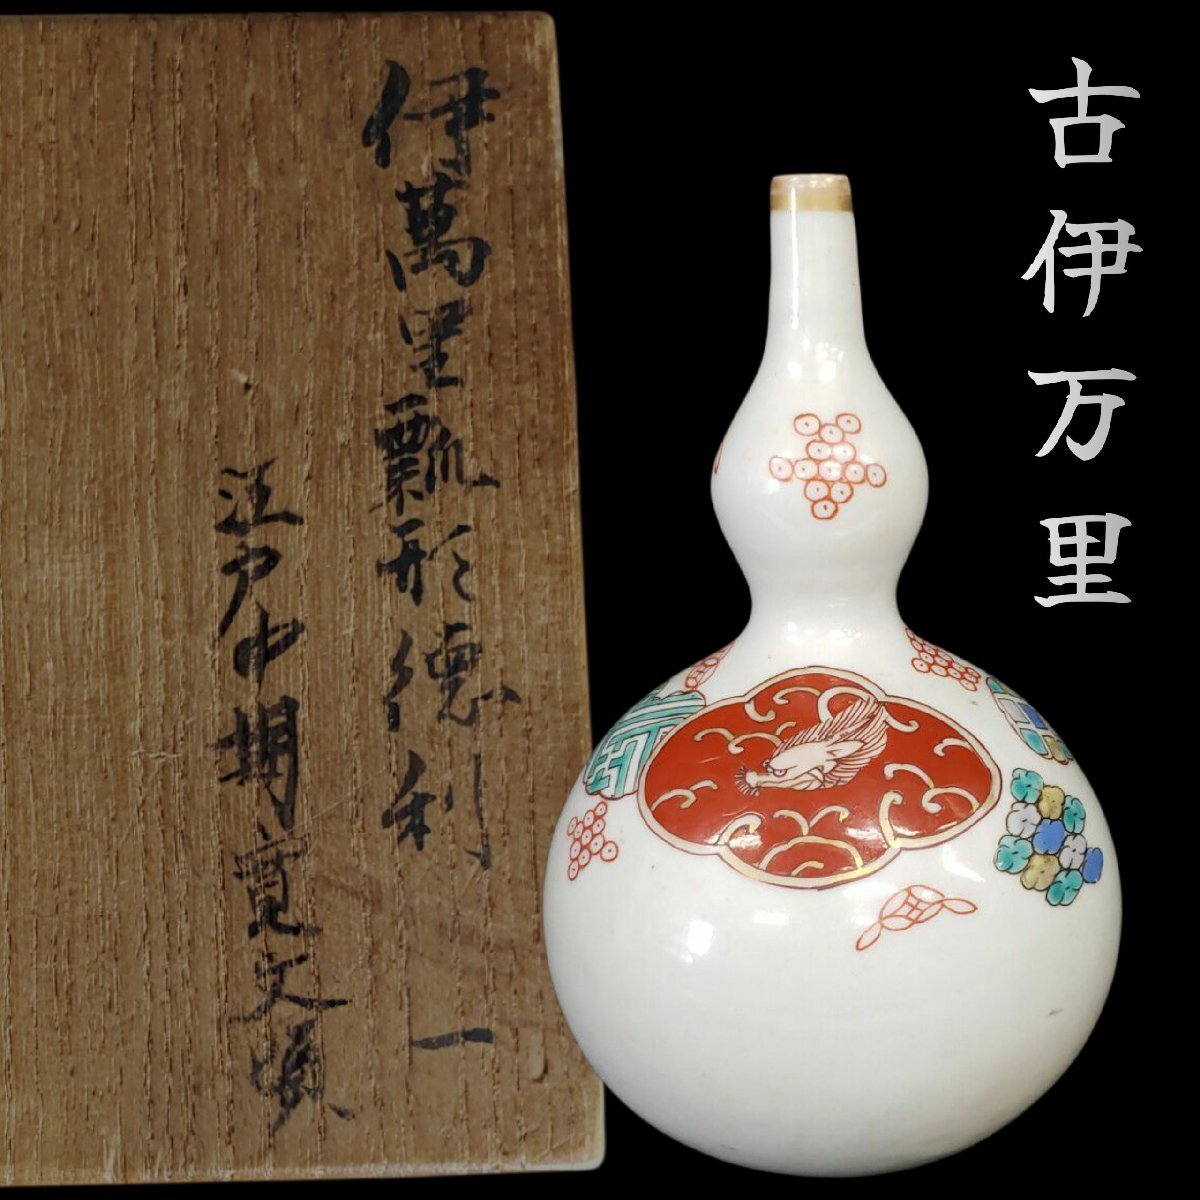 古伊万里
伊萬里瓢形徳利 一
江戸中期寛文頃